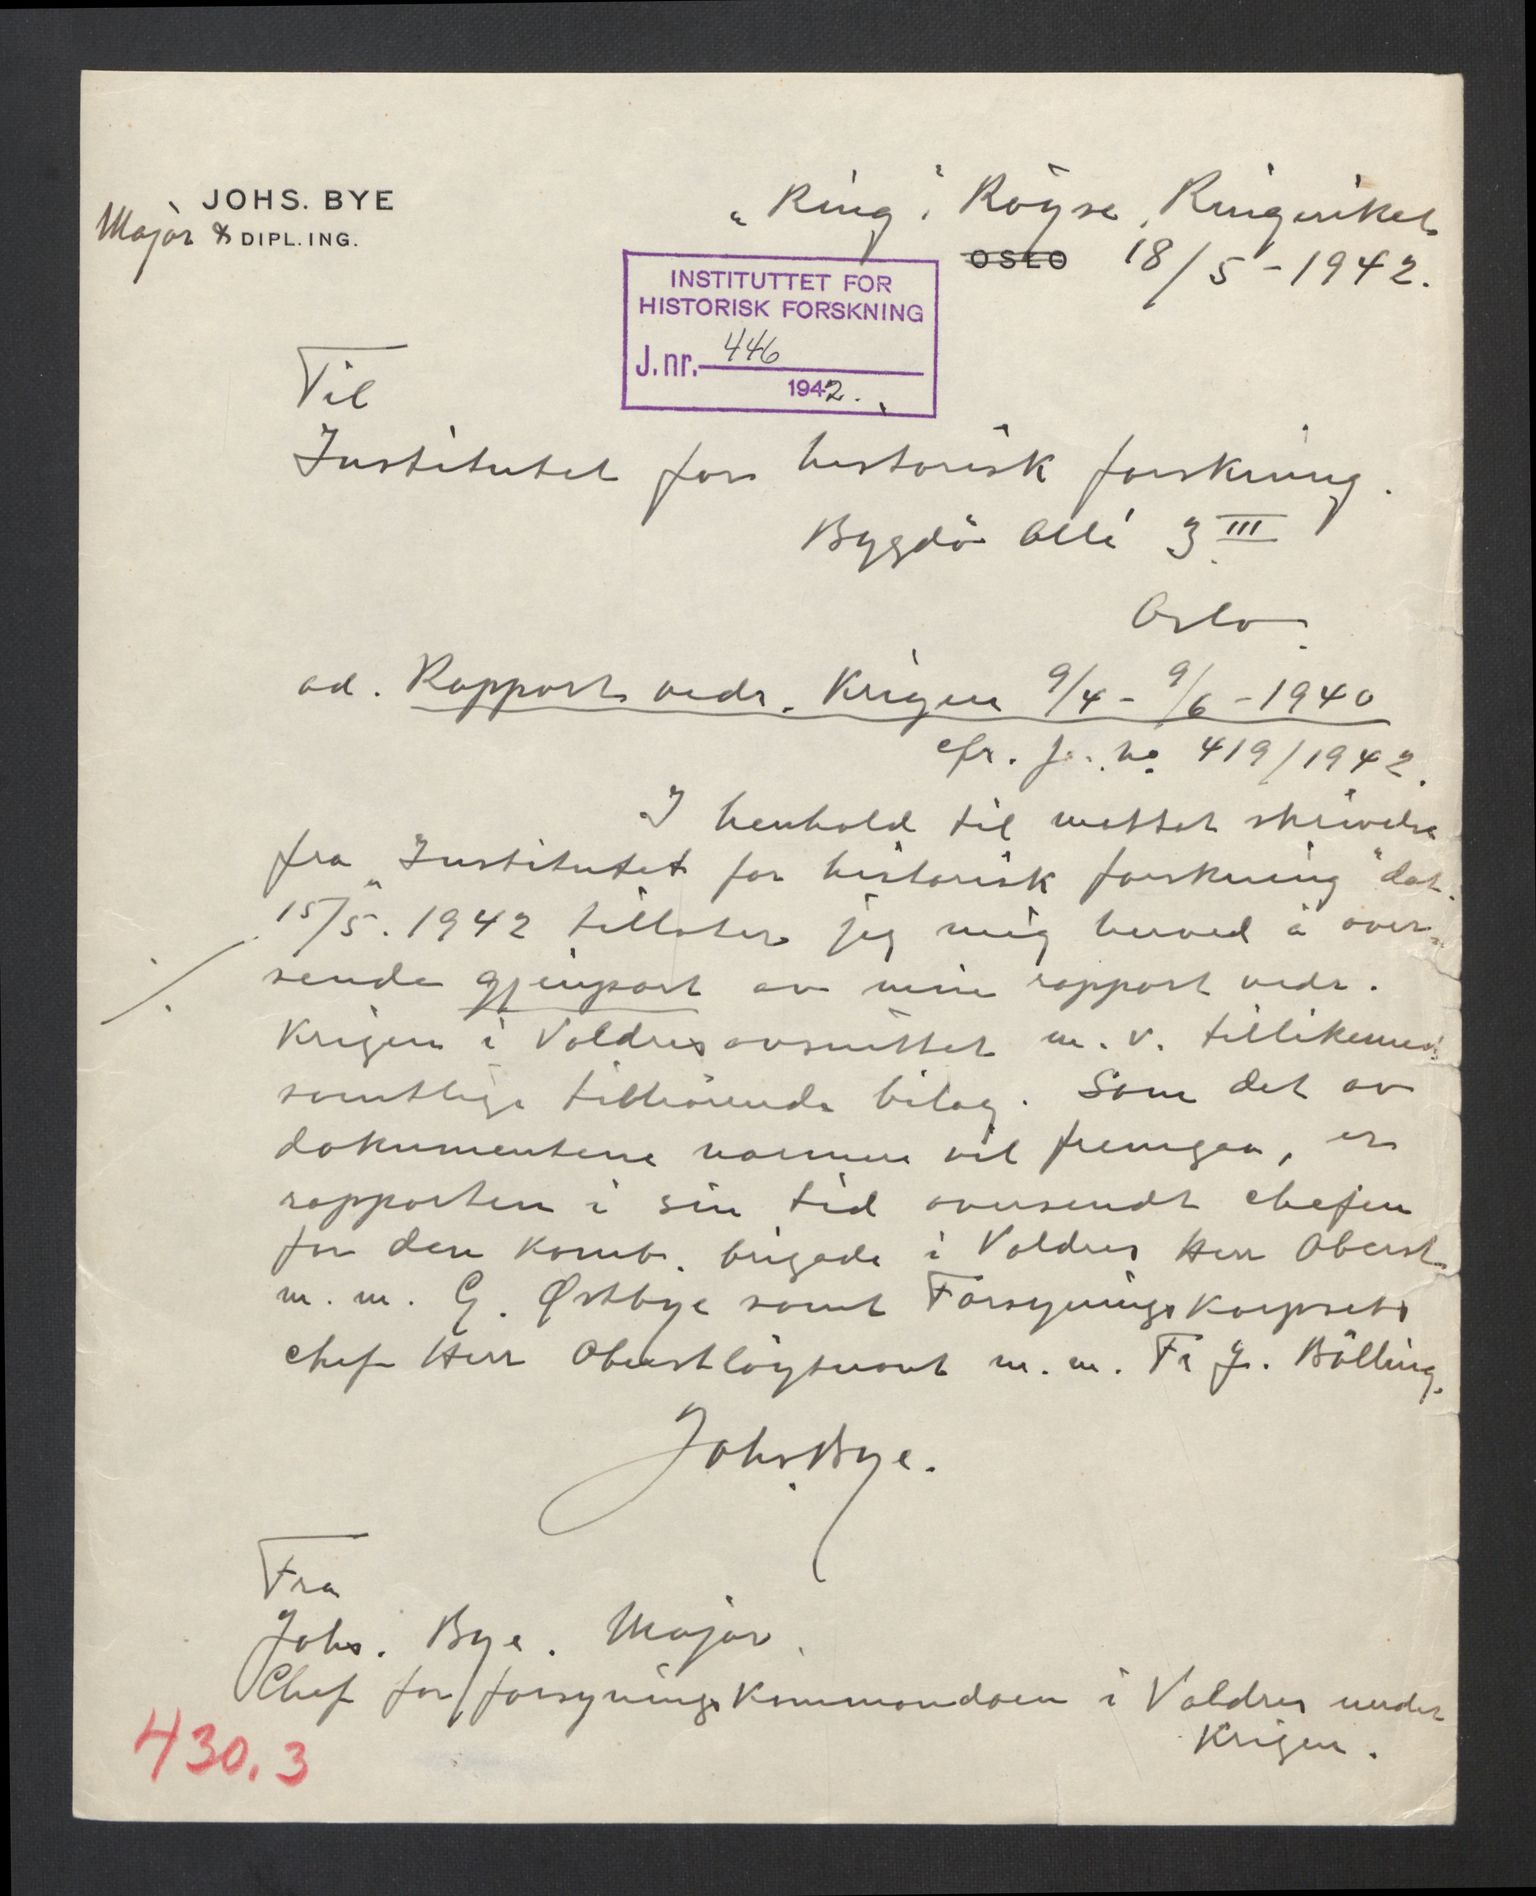 JOHS. BYE
Major & DIPL. ING.
„Ring", Röyse, Ringerike.
OSLO 18/5 - 1942.
INSTITUTTET FOR
HISTORISK FORSKNING
J. nr. 446
1942.
Til
Institutet for historisk forskning.
Bygdö Allé 3 III
Oslo.
ad. Rapport vedr. Krigen 9/4 - 9/6 - 1940
cfr. j. no. 419/1942.
I henhold til mottat skrivelse
fra „Institutet for historisk forskning" dat.
15/5. 1942 tillater jeg mig herved å over-
sende gjenpart av min rapport vedr.
Krigen i Valdresavsnittet m. v. tillikemed
samtlige tilhörende bilag. Som det av
dokumentene nærmere vil fremgaa, er
rapporten i sin tid oversendt chefen
for den komb. brigade i Valdres Herr Oberst
m. m. G. Østbye samt Forsyningskorpsets
chef Herr Oberstlöytnant m. m. Fr. J. Bölling.
Johs. Bye.
Fra
Johs. Bye. Major.
Chef for forsyningskommandoen i Valdres under
Krigen.
430.3